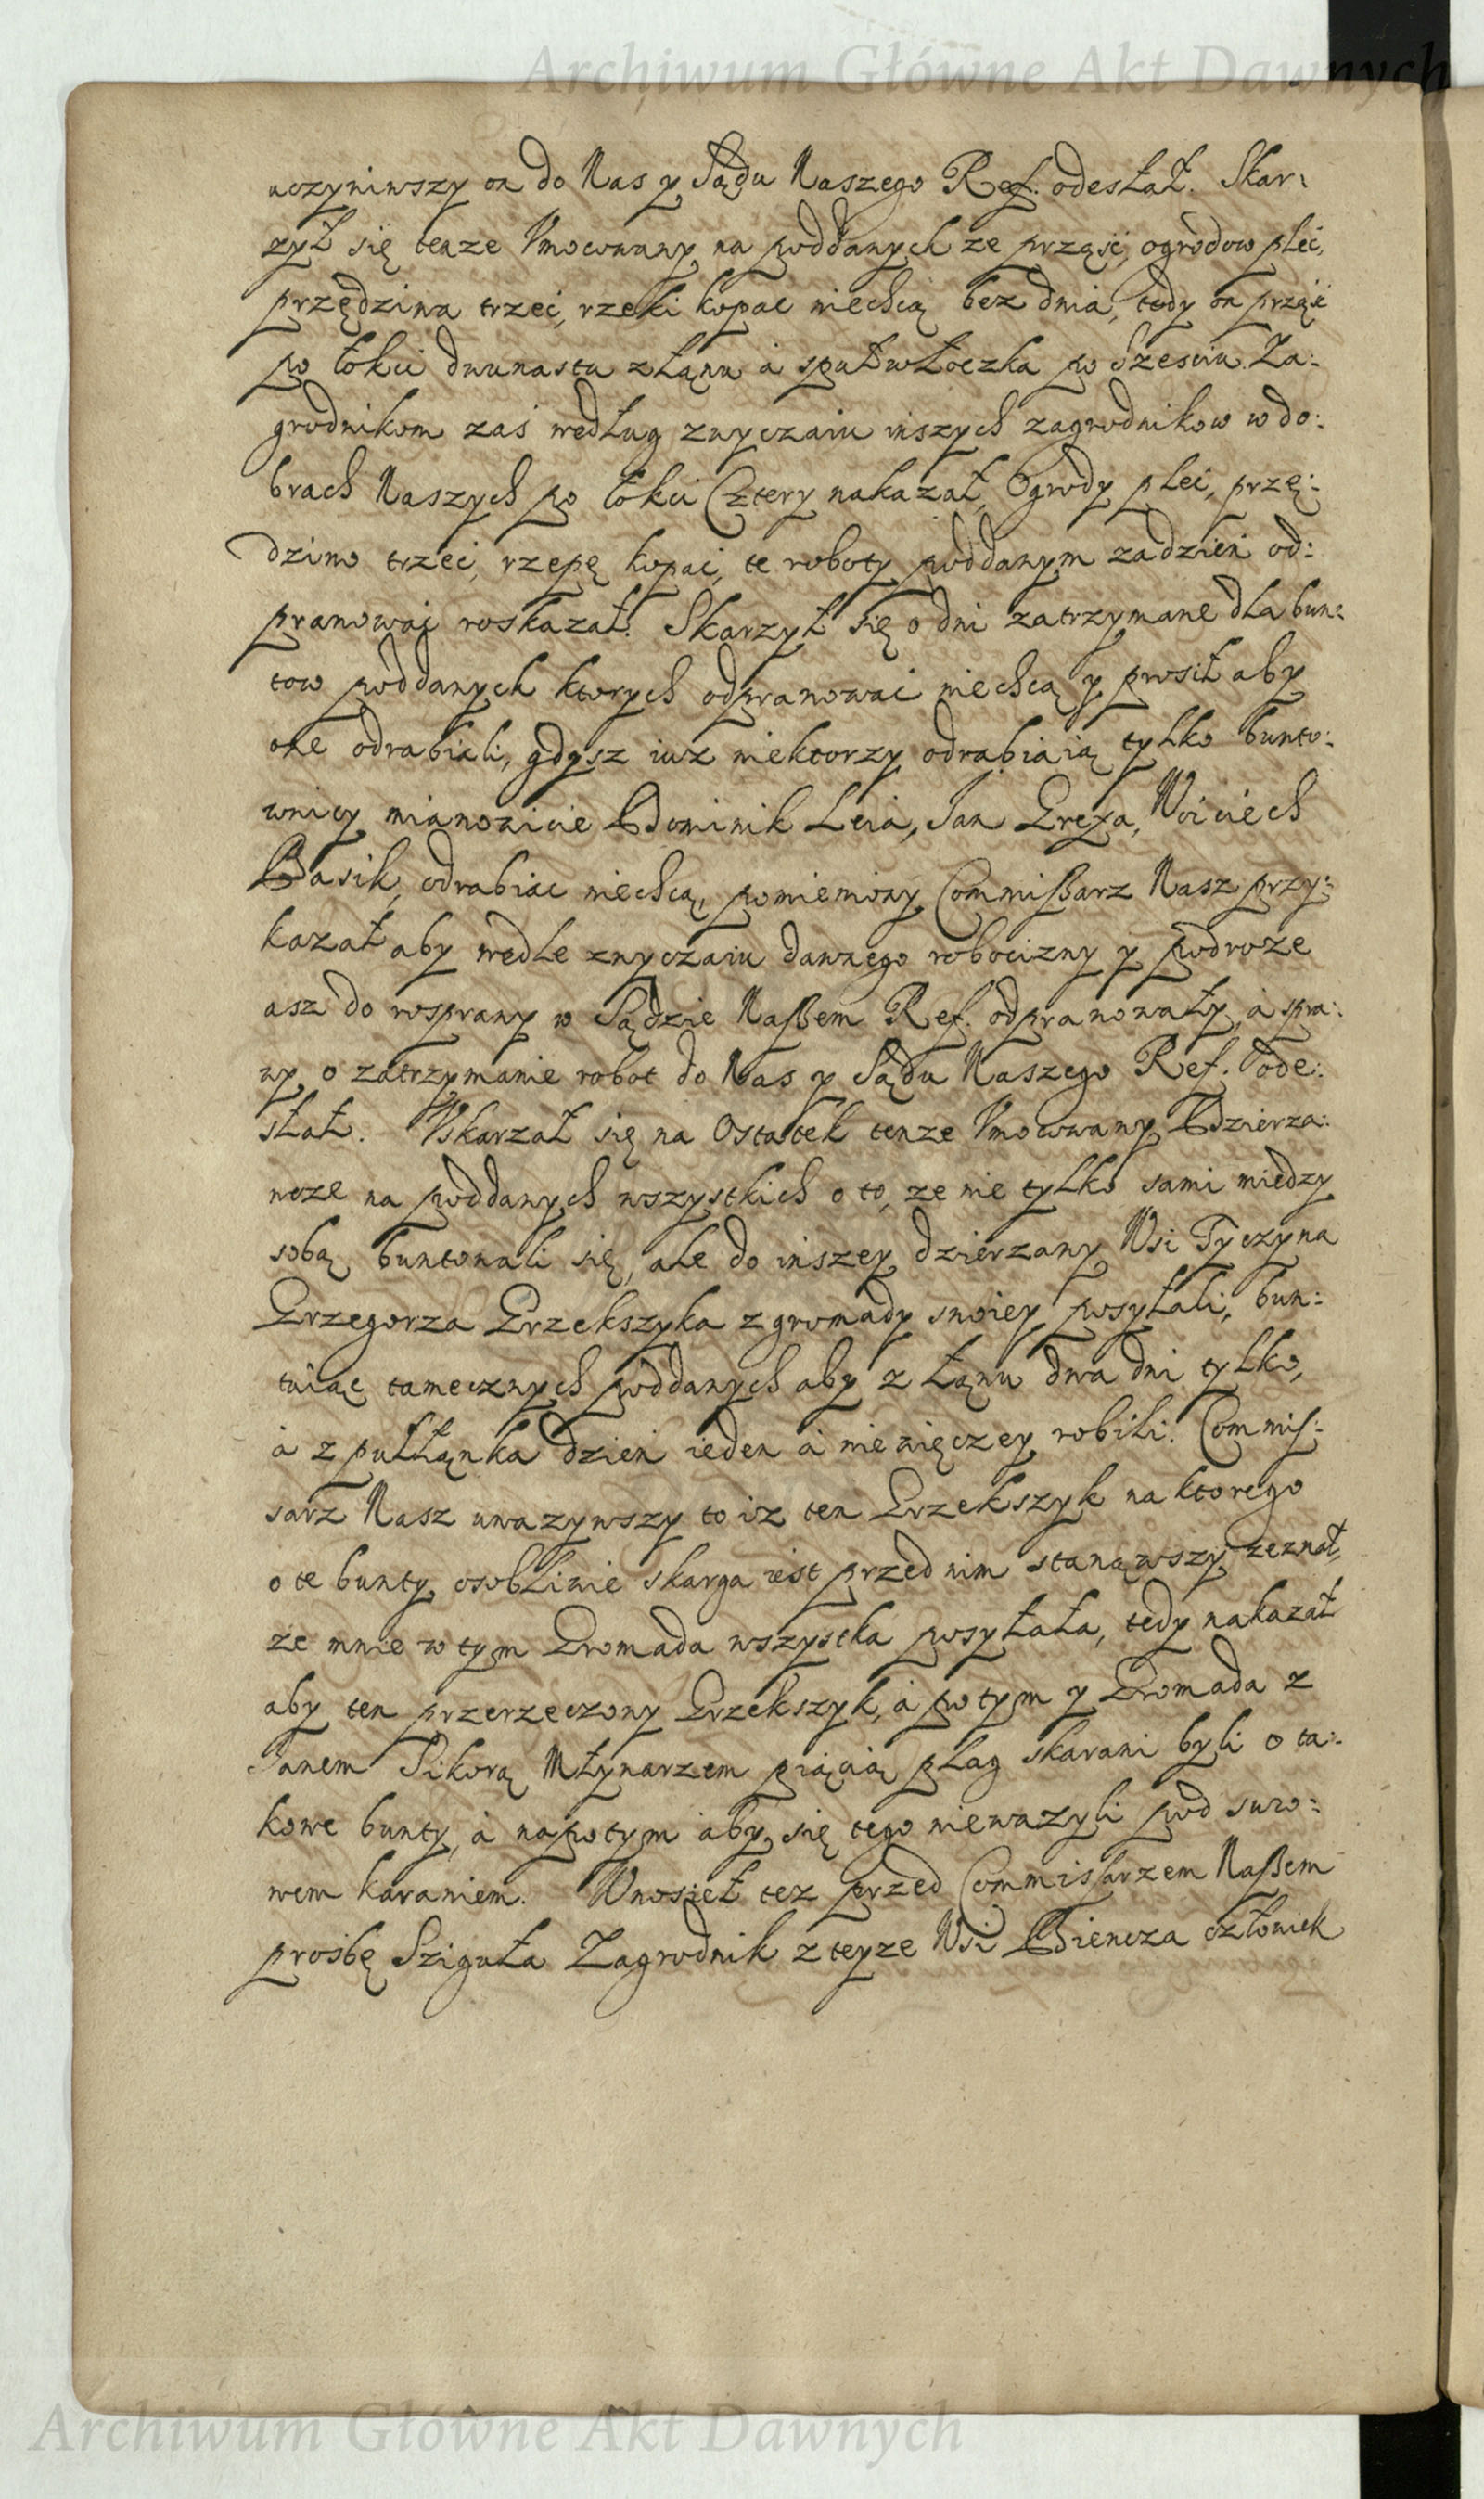 Archiwum Główne Akt Dawnych
uczyniwszy on do Nas y Sądu Naszego Ref. odesłał. Skar:
zył się tenze Vmocowany na poddanych ze prząść, ogrodow pleć,
przędziwa trzeć, rzeki kopac niechcą bez dnia, tedy on prząść
po łokci dwunastu złanu á społwłoczka po Sześciu. Za:
grodnikom zaś według zwyczaiu inszych zagrodnikow w do:
brach Naszych po łokci Cztery nakazał, Ogrody pleć, przę:
dziwo trzeć, rzepę kopać, te roboty poddanym zadzień od:
prawować roskazał. Skarzył się o dni zatrzymane dla bun:
tow poddanych ktorych odprawować niechcą y prosił aby
one odrabiali, gdysz iuz niektorzy odrabiaią tylko bunto:
wnicy mianowicie Dominik Leia, Jan Greza, Woiciech
Basik, odrabiac niechcą, pomieniony Commißarz Nasz przy:
kazał aby wedle zwyczaiu dawnego robocizny y podroze
asz do rosprawy w Sądzie Naßem Ref. odprawowały, á spra:
wy o zatrzymanie robot do Nas y Sądu Naszego Ref. ode:
słał. Vskarzał się na Ostatek tenze Vmocowany Dzierza:
wcze na poddanych wszystkich o to, ze nie tylko sami miedzy
sobą buntowali się, ale do inszey dzierzawy Wsi Tyczyna
Grzegorza Grzekszyka z gromady swoiey posyłali, bun:
tuiąc tamecznych poddanych aby z łanu dwa dni tylko,
á z pułłanka dzień ieden á niewięczey robili. Commis:
sarz Nasz uwazywszy to iz ten Grzekszyk na ktorego
o te bunty osobliwie skarga iest przed nim stanąwszy zeznał,
ze mnie w tym Gromada wszystka posyłała, tedy nakazał
aby ten przerzeczony Grzekszyk, á potym y Gromada z
Janem Sikorą Młynarzem piącią plag skarani byli o ta:
kowe bunty, á napotym aby się tego niewazyli pod suro:
wem karaniem. Wnosieł tez przed Commissarzem Naßem
prośbę Sziguła Zagrodnik z teyze Wsi Biencza człowiek
Archiwum Główne Akt Dawnych